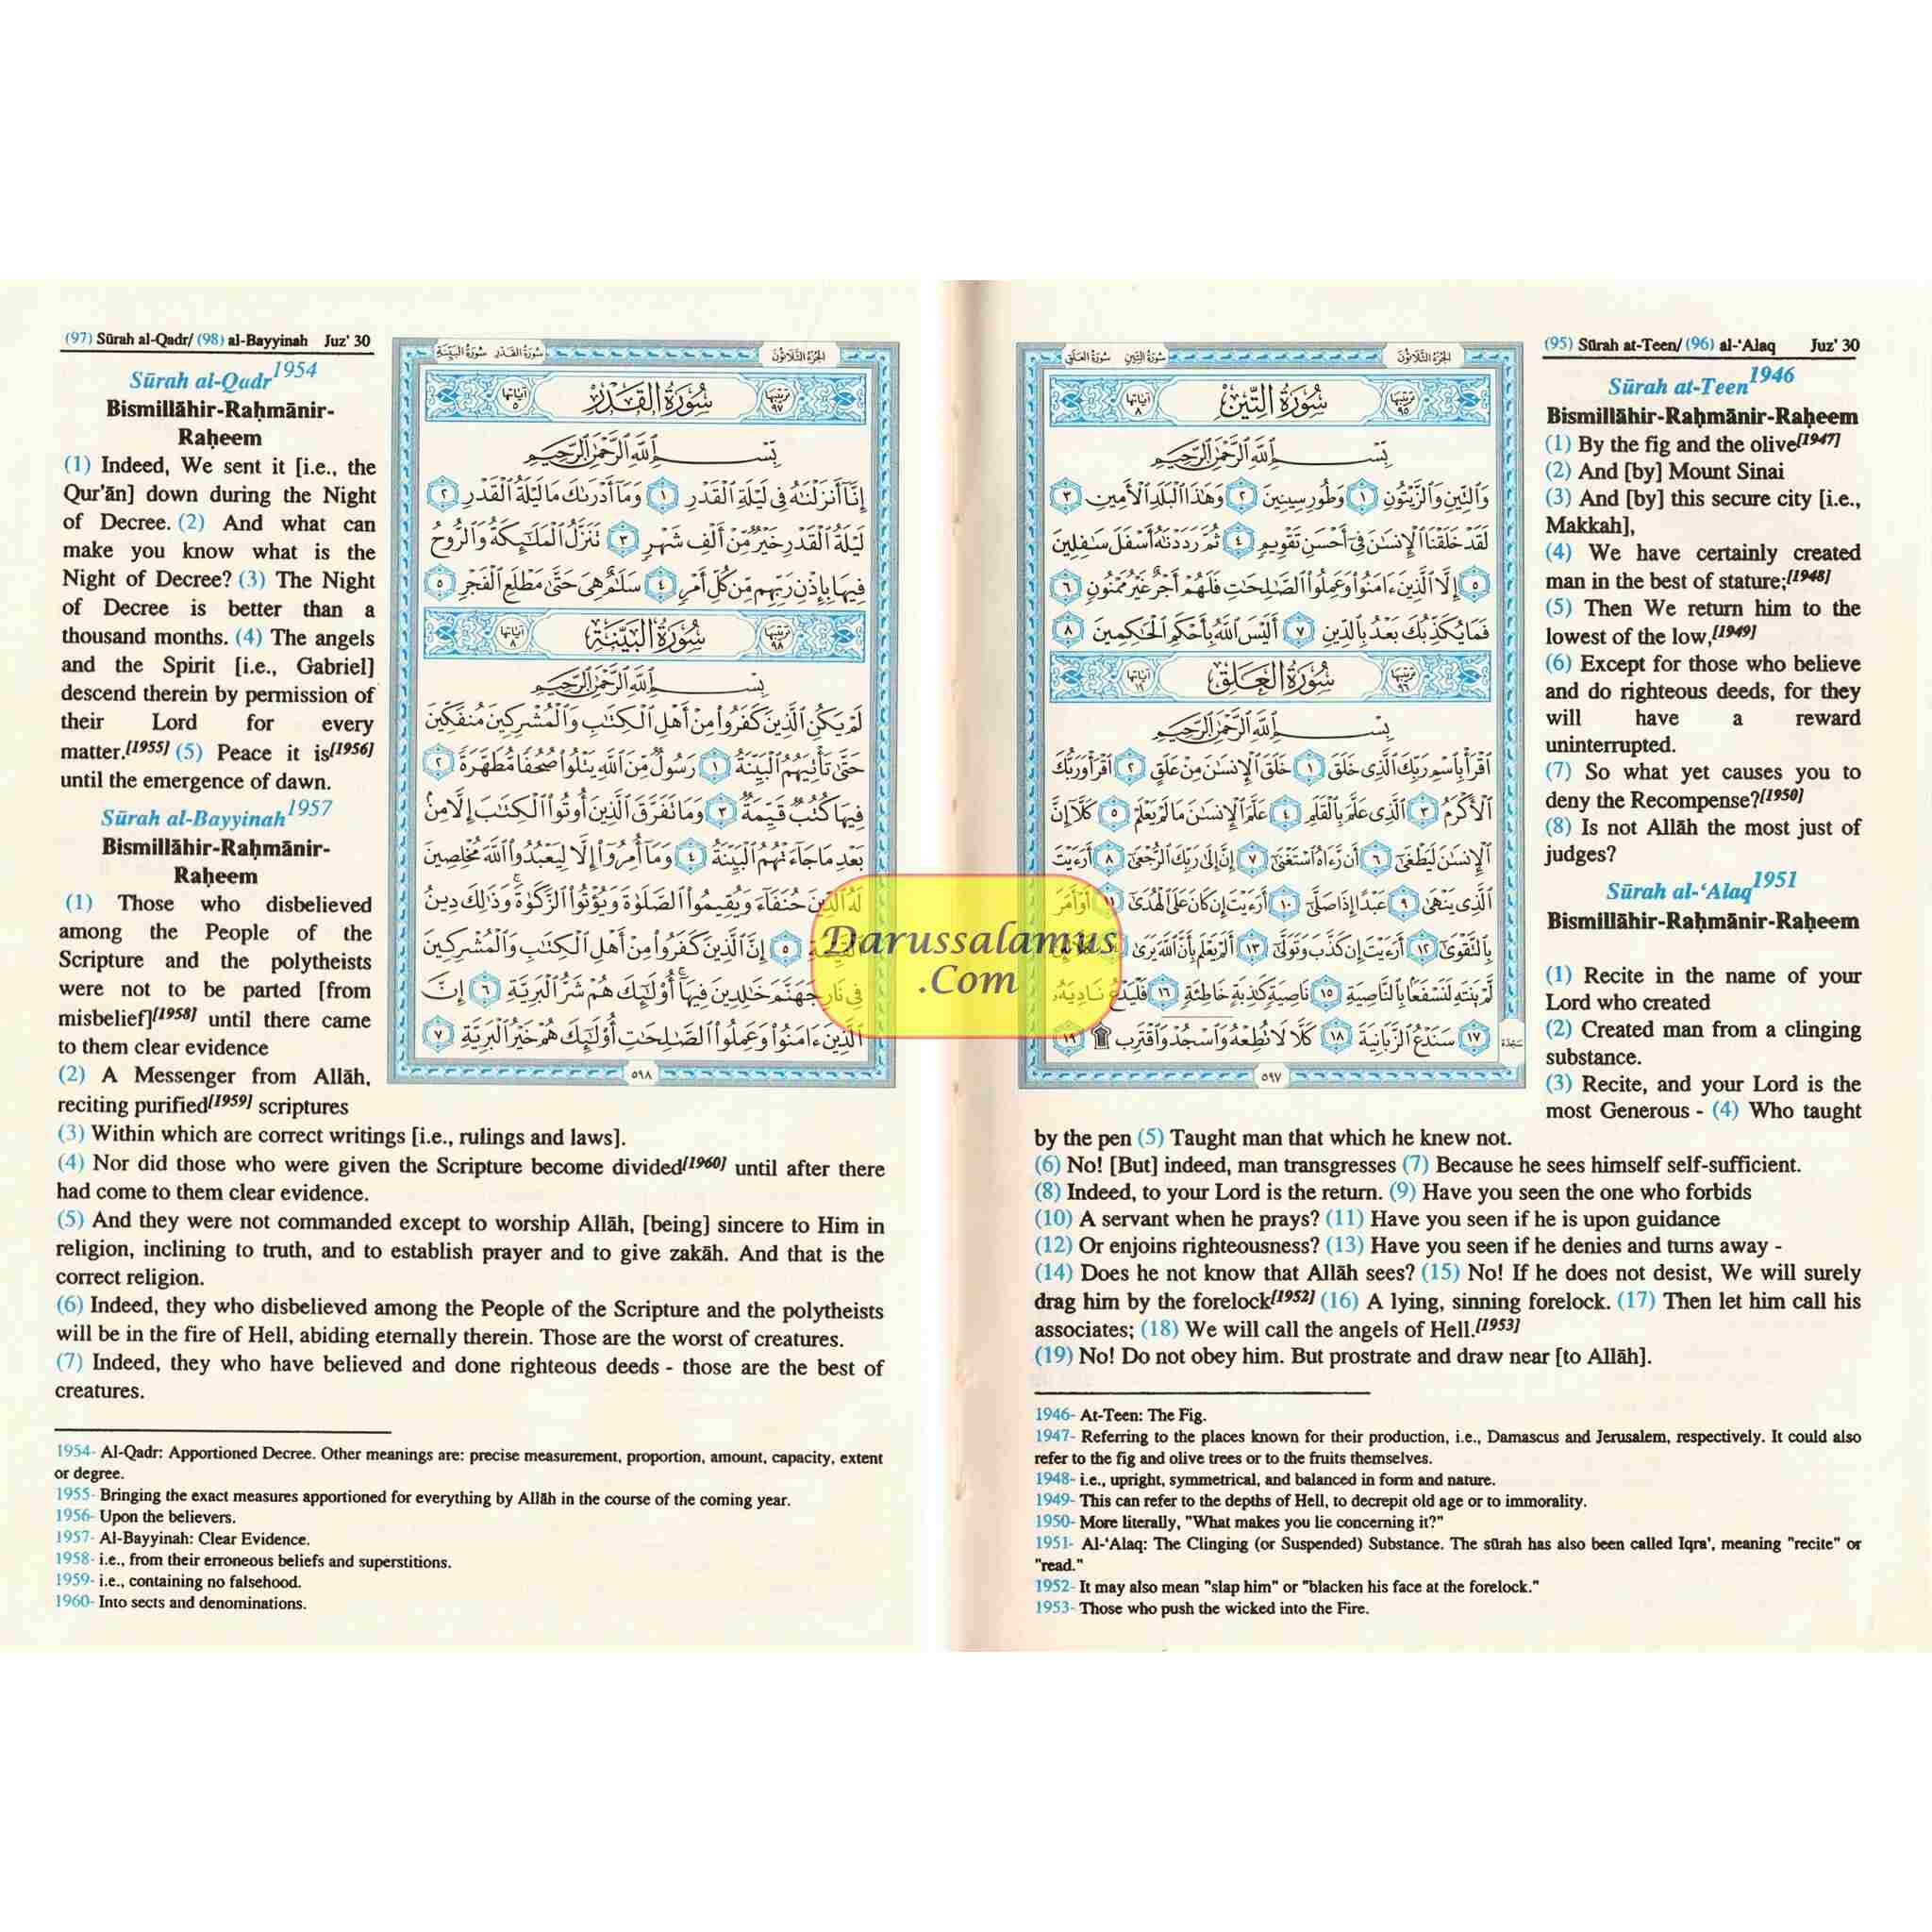 (97) Sūrah al-Qadr/ (98) al-Bayyinah Juz' 30
Sūrah al-Qadr1954
Bismillāhir-Raḥmānir-
Raḥeem
(1) Indeed, We sent it [i.e., the
Qur'ān] down during the Night
of Decree. (2) And what can
make you know what is the
Night of Decree? (3) The Night
of Decree is better than a
thousand months. (4) The angels
and the Spirit [i.e., Gabriel]
descend therein by permission of
their Lord for every
matter.[1955] (5) Peace it is[1956]
until the emergence of dawn.
Sūrah al-Bayyinah1957
Bismillāhir-Raḥmānir-
Raḥeem
(1) Those who disbelieved
among the People of the
Scripture and the polytheists
were not to be parted [from
misbelief][1958] until there came
to them clear evidence
(2) A Messenger from Allāh,
reciting purified[1959] scriptures
(3) Within which are correct writings [i.e., rulings and laws].
(4) Nor did those who were given the Scripture become divided[1960] until after there
had come to them clear evidence.
(5) And they were not commanded except to worship Allāh, [being] sincere to Him in
religion, inclining to truth, and to establish prayer and to give zakāh. And that is the
correct religion.
(6) Indeed, they who disbelieved among the People of the Scripture and the polytheists
will be in the fire of Hell, abiding eternally therein. Those are the worst of creatures.
(7) Indeed, they who have believed and done righteous deeds - those are the best of
creatures.
1954- Al-Qadr: Apportioned Decree. Other meanings are: precise measurement, proportion, amount, capacity, extent
or degree.
1955- Bringing the exact measures apportioned for everything by Allāh in the course of the coming year.
1956- Upon the believers.
1957- Al-Bayyinah: Clear Evidence.
1958- i.e., from their erroneous beliefs and superstitions.
1959- i.e., containing no falsehood.
1960- Into sects and denominations.
الجزء الثلاثون سورة القدر سورة البينة
ترتيبها ٩٧ سُورَةُ القَدْرِ آياتها ٥
بِسْمِ اللَّهِ الرَّحْمَٰنِ الرَّحِيمِ
إِنَّا أَنزَلْنَٰهُ فِي لَيْلَةِ ٱلْقَدْرِ ١ وَمَا أَدْرَىٰكَ مَا لَيْلَةُ ٱلْقَدْرِ ٢
لَيْلَةُ ٱلْقَدْرِ خَيْرٌ مِّنْ أَلْفِ شَهْرٍ ٣ تَنَزَّلُ ٱلْمَلَٰٓئِكَةُ وَٱلرُّوحُ
فِيهَا بِإِذْنِ رَبِّهِم مِّن كُلِّ أَمْرٍ ٤ سَلَٰمٌ هِيَ حَتَّىٰ مَطْلَعِ ٱلْفَجْرِ ٥
ترتيبها ٩٨ سُورَةُ البَيِّنَةِ آياتها ٨
بِسْمِ اللَّهِ الرَّحْمَٰنِ الرَّحِيمِ
لَمْ يَكُنِ ٱلَّذِينَ كَفَرُوا۟ مِنْ أَهْلِ ٱلْكِتَٰبِ وَٱلْمُشْرِكِينَ مُنفَكِّينَ
حَتَّىٰ تَأْتِيَهُمُ ٱلْبَيِّنَةُ ١ رَسُولٌ مِّنَ ٱللَّهِ يَتْلُوا۟ صُحُفًا مُّطَهَّرَةً ٢
فِيهَا كُتُبٌ قَيِّمَةٌ ٣ وَمَا تَفَرَّقَ ٱلَّذِينَ أُوتُوا۟ ٱلْكِتَٰبَ إِلَّا مِنۢ
بَعْدِ مَا جَآءَتْهُمُ ٱلْبَيِّنَةُ ٤ وَمَآ أُمِرُوٓا۟ إِلَّا لِيَعْبُدُوا۟ ٱللَّهَ مُخْلِصِينَ
لَهُ ٱلدِّينَ حُنَفَآءَ وَيُقِيمُوا۟ ٱلصَّلَوٰةَ وَيُؤْتُوا۟ ٱلزَّكَوٰةَ ۚ وَذَٰلِكَ دِينُ
٥ إِنَّ ٱلَّذِينَ كَفَرُوا۟ مِنْ أَهْلِ ٱلْكِتَٰبِ وَٱلْمُشْرِكِينَ
فِي نَارِ جَهَنَّمَ خَٰلِدِينَ فِيهَآ ۚ أُو۟لَٰٓئِكَ هُمْ شَرُّ ٱلْبَرِيَّةِ ٦ إِنَّ
ٱلَّذِينَ ءَامَنُوا۟ وَعَمِلُوا۟ ٱلصَّٰلِحَٰتِ أُو۟لَٰٓئِكَ هُمْ خَيْرُ ٱلْبَرِيَّةِ ٧
٥٩٨
Darussalamus
.Com
الجزء الثلاثون سورة التين سورة العلق
ترتيبها ٩٥ سُورَةُ التِّينِ آياتها ٨
بِسْمِ اللَّهِ الرَّحْمَٰنِ الرَّحِيمِ
وَٱلتِّينِ وَٱلزَّيْتُونِ ١ وَطُورِ سِينِينَ ٢ وَهَٰذَا ٱلْبَلَدِ ٱلْأَمِينِ ٣
لَقَدْ خَلَقْنَا ٱلْإِنسَٰنَ فِيٓ أَحْسَنِ تَقْوِيمٍ ٤ ثُمَّ رَدَدْنَٰهُ أَسْفَلَ سَٰفِلِينَ
٥ إِلَّا ٱلَّذِينَ ءَامَنُوا۟ وَعَمِلُوا۟ ٱلصَّٰلِحَٰتِ فَلَهُمْ أَجْرٌ غَيْرُ مَمْنُونٍ ٦
فَمَا يُكَذِّبُكَ بَعْدُ بِٱلدِّينِ ٧ أَلَيْسَ ٱللَّهُ بِأَحْكَمِ ٱلْحَٰكِمِينَ ٨
ترتيبها ٩٦ سُورَةُ العَلَقِ آياتها ١٩
بِسْمِ اللَّهِ الرَّحْمَٰنِ الرَّحِيمِ
ٱقْرَأْ بِٱسْمِ رَبِّكَ ٱلَّذِي خَلَقَ ١ خَلَقَ ٱلْإِنسَٰنَ مِنْ عَلَقٍ ٢ ٱقْرَأْ وَرَبُّكَ
ٱلْأَكْرَمُ ٣ ٱلَّذِي عَلَّمَ بِٱلْقَلَمِ ٤ عَلَّمَ ٱلْإِنسَٰنَ مَا لَمْ يَعْلَمْ ٥ كَلَّآ إِنَّ
ٱلْإِنسَٰنَ لَيَطْغَىٰٓ ٦ أَن رَّءَاهُ ٱسْتَغْنَىٰٓ ٧ إِنَّ إِلَىٰ رَبِّكَ ٱلرُّجْعَىٰٓ ٨ أَرَءَيْتَ
ٱلَّذِي يَنْهَىٰ ٩ عَبْدًا إِذَا صَلَّىٰٓ ١٠ أَرَءَيْتَ إِن كَانَ عَلَى ٱلْهُدَىٰٓ ١١ أَوْ أَمَرَ
بِٱلتَّقْوَىٰٓ ١٢ أَرَءَيْتَ إِن كَذَّبَ وَتَوَلَّىٰٓ ١٣ أَلَمْ يَعْلَم بِأَنَّ ٱللَّهَ يَرَىٰ
لَّمْ يَنتَهِ لَنَسْفَعًۢا بِٱلنَّاصِيَةِ ١٥ نَاصِيَةٍ كَٰذِبَةٍ خَاطِئَةٍ ١٦ فَلْيَدْعُ نَادِيَهُۥ
١٧ سَنَدْعُ ٱلزَّبَانِيَةَ ١٨ كَلَّا لَا تُطِعْهُ وَٱسْجُدْ وَٱقْتَرِب ۩ ١٩
سجدة
٥٩٧
(95) Sūrah at-Teen/ (96) al-‘Alaq Juz' 30
Sūrah at-Teen1946
Bismillāhir-Raḥmānir-Raḥeem
(1) By the fig and the olive[1947]
(2) And [by] Mount Sinai
(3) And [by] this secure city [i.e.,
Makkah],
(4) We have certainly created
man in the best of stature;[1948]
(5) Then We return him to the
lowest of the low,[1949]
(6) Except for those who believe
and do righteous deeds, for they
will have a reward
uninterrupted.
(7) So what yet causes you to
deny the Recompense?[1950]
(8) Is not Allāh the most just of
judges?
Sūrah al-‘Alaq1951
Bismillāhir-Raḥmānir-Raḥeem
(1) Recite in the name of your
Lord who created
(2) Created man from a clinging
substance.
(3) Recite, and your Lord is the
most Generous - (4) Who taught
by the pen (5) Taught man that which he knew not.
(6) No! [But] indeed, man transgresses (7) Because he sees himself self-sufficient.
(8) Indeed, to your Lord is the return. (9) Have you seen the one who forbids
(10) A servant when he prays? (11) Have you seen if he is upon guidance
(12) Or enjoins righteousness? (13) Have you seen if he denies and turns away -
(14) Does he not know that Allāh sees? (15) No! If he does not desist, We will surely
drag him by the forelock[1952] (16) A lying, sinning forelock. (17) Then let him call his
associates; (18) We will call the angels of Hell.[1953]
(19) No! Do not obey him. But prostrate and draw near [to Allāh].
1946- At-Teen: The Fig.
1947- Referring to the places known for their production, i.e., Damascus and Jerusalem, respectively. It could also
refer to the fig and olive trees or to the fruits themselves.
1948- i.e., upright, symmetrical, and balanced in form and nature.
1949- This can refer to the depths of Hell, to decrepit old age or to immorality.
1950- More literally, "What makes you lie concerning it?"
1951- Al-‘Alaq: The Clinging (or Suspended) Substance. The sūrah has also been called Iqra', meaning "recite" or
"read."
1952- It may also mean "slap him" or "blacken his face at the forelock."
1953- Those who push the wicked into the Fire.